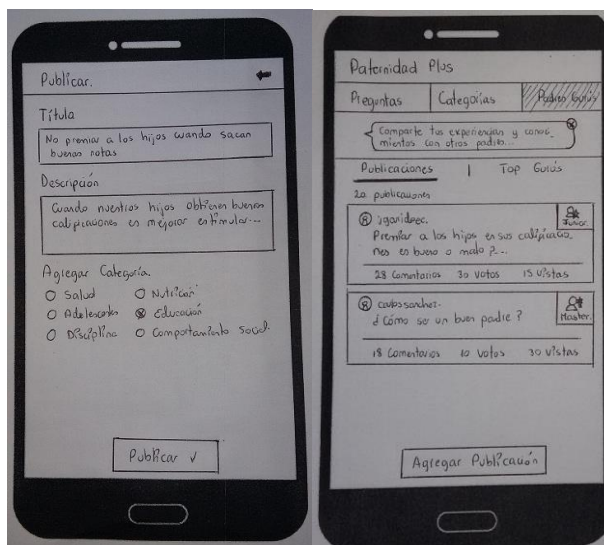 Publicar.
Título
No premiar a los hijos cuando sacan
buenas notas
Descripción
Cuando nuestros hijos obtienen buenas
calificaciones es mejorar estimular...
Agregar Categoría.
Salud
Nutrición
Adolescentes
Educación
Disciplina
Comportamiento Social.
Publicar ✓
Paternidad Plus
Preguntas
Categorías
Padres Gurús
Comparte tus experiencias y conoci_
mientos con otros padres...
Publicaciones | Top Gurús
20 publicaciones
Junior.
Premiar a los hijos en sus calificacio_
nes es bueno o malo?...
28 Comentarios 30 Votos 15 Vistas
carlossanchez.
Master.
¿Cómo ser un buen padre?
18 Comentarios 10 Votos 30 Vistas
Agregar Publicación